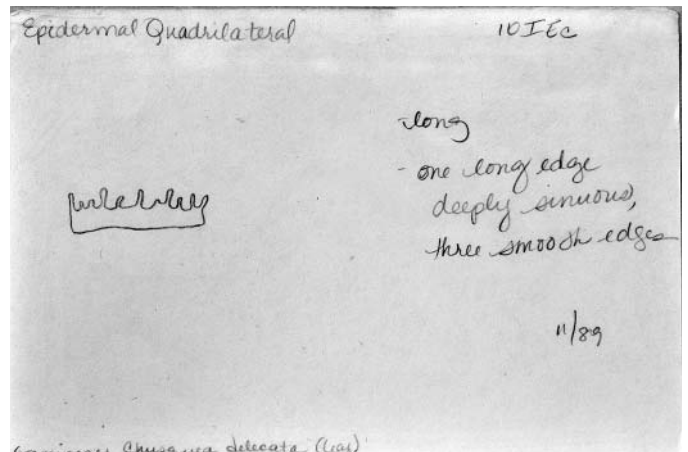 Epidermal Quadrilateral
10IEc
-long
- one long edge
deeply sinuous,
three smooth edges
11/89
Chusquea delicata (leaf)